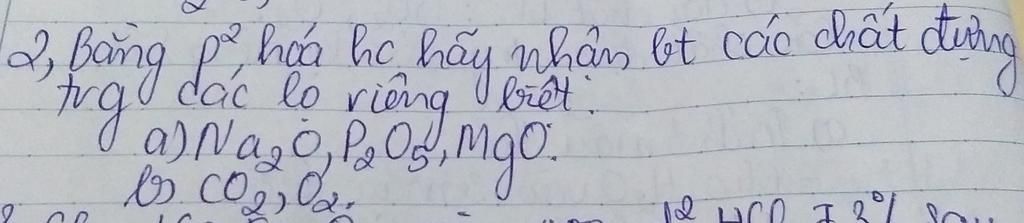 2, Bằng p², hoá hc hãy nhận bt các chất đựng
trg các lọ riêng biệt:
a) Na₂O, P₂O₅, MgO.
b) CO₂, O₂.